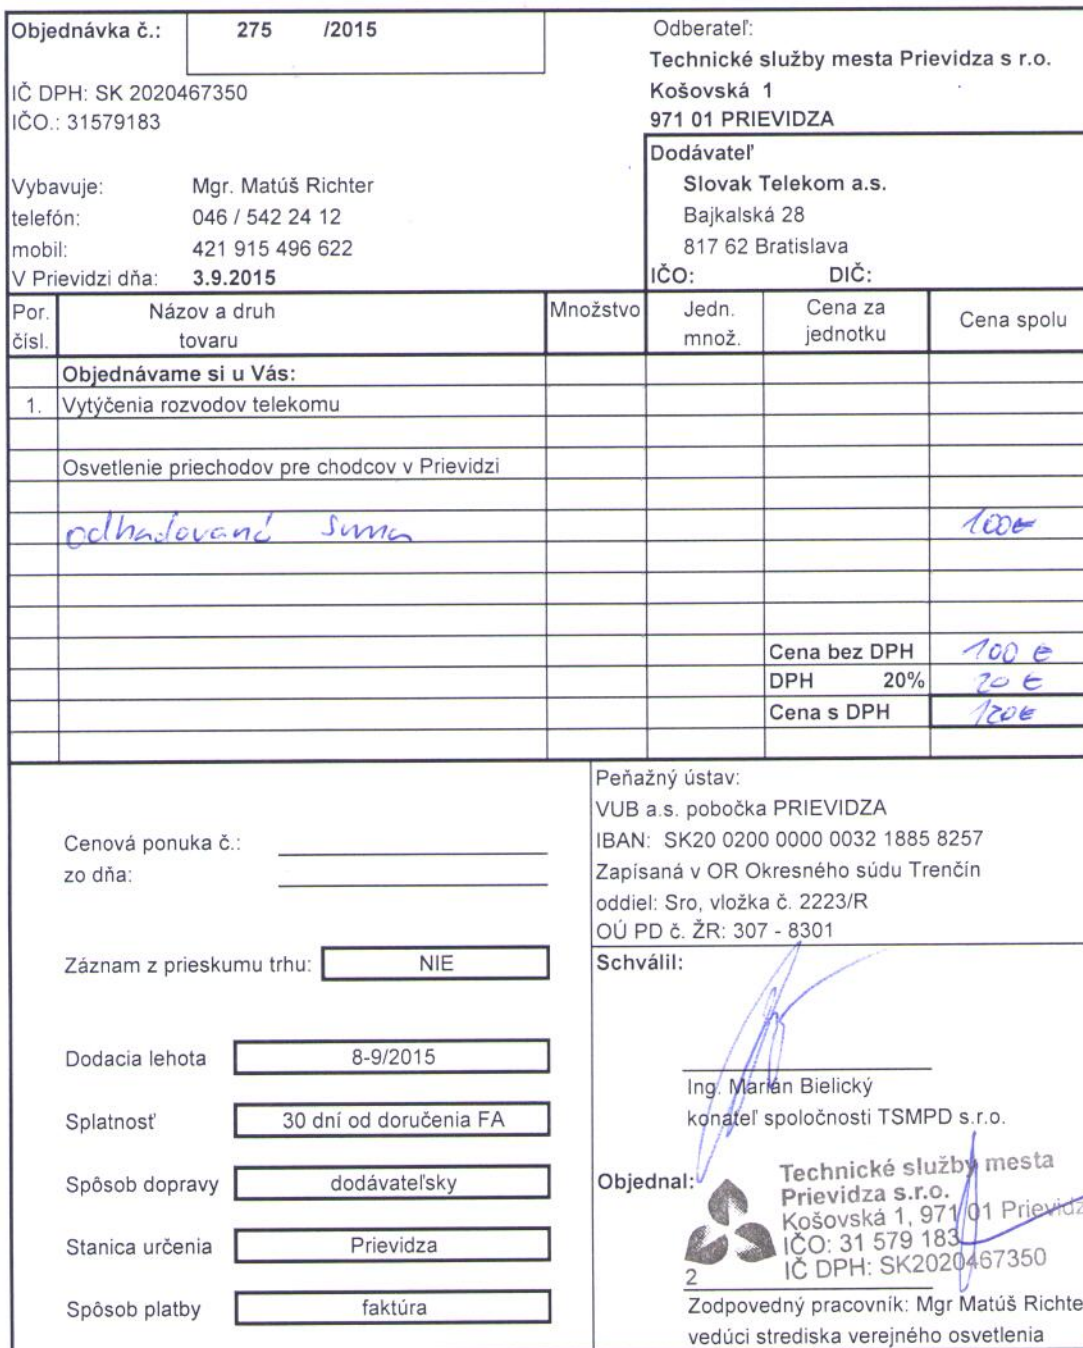 Objednávka č.: 275 /2015
IČ DPH: SK 2020467350
IČO.: 31579183
Vybavuje: Mgr. Matúš Richter
telefón: 046 / 542 24 12
mobil: 421 915 496 622
V Prievidzi dňa: 3.9.2015
Odberateľ:
Technické služby mesta Prievidza s r.o.
Košovská 1
971 01 PRIEVIDZA
Dodávateľ
Slovak Telekom a.s.
Bajkalská 28
817 62 Bratislava
IČO: DIČ:
Por. čísl. Názov a druh tovaru Množstvo Jedn. množ. Cena za jednotku Cena spolu
Objednávame si u Vás:
1. Vytýčenia rozvodov telekomu
Osvetlenie priechodov pre chodcov v Prievidzi
odhadovaná suma 100€
Cena bez DPH 100 €
DPH 20% 20 €
Cena s DPH 120€
Cenová ponuka č.:
zo dňa:
Záznam z prieskumu trhu: NIE
Dodacia lehota 8-9/2015
Splatnosť 30 dní od doručenia FA
Spôsob dopravy dodávateľsky
Stanica určenia Prievidza
Spôsob platby faktúra
Peňažný ústav:
VUB a.s. pobočka PRIEVIDZA
IBAN: SK20 0200 0000 0032 1885 8257
Zapísaná v OR Okresného súdu Trenčín
oddiel: Sro, vložka č. 2223/R
OÚ PD č. ŽR: 307 - 8301
Schválil:
Ing. Marián Bielický
konateľ spoločnosti TSMPD s.r.o.
Objednal:
Technické služby mesta
Prievidza s.r.o.
Košovská 1, 971 01 Prievidz
IČO: 31 579 183
IČ DPH: SK2020467350
2
Zodpovedný pracovník: Mgr Matúš Richte
vedúci strediska verejného osvetlenia